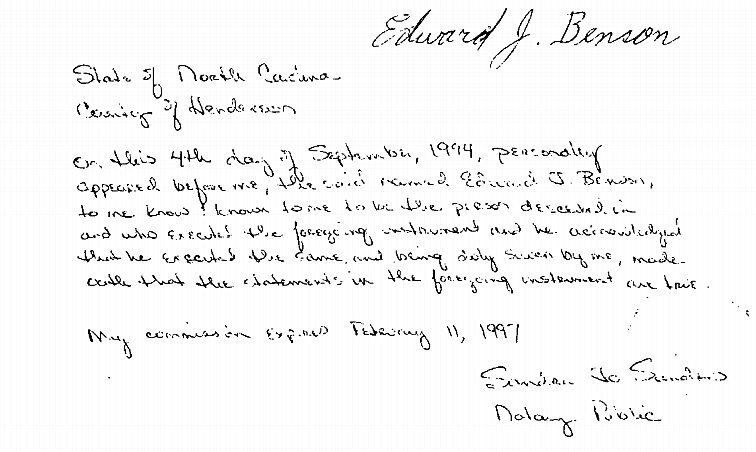 Edward J. Benson
State of North Carolina
County of Henderson
On this 4th day of September, 1994, personally
appeared before me, the said named Edward J. Benson,
to me know & known to me to be the person described in
and who executed the foregoing instrument and he acknowledged
that he executed the same, and being duly sworn by me, made
oath that the statements in the foregoing instrument are true.
My commission expires February 11, 1997
Sandra Jo
Notary Public